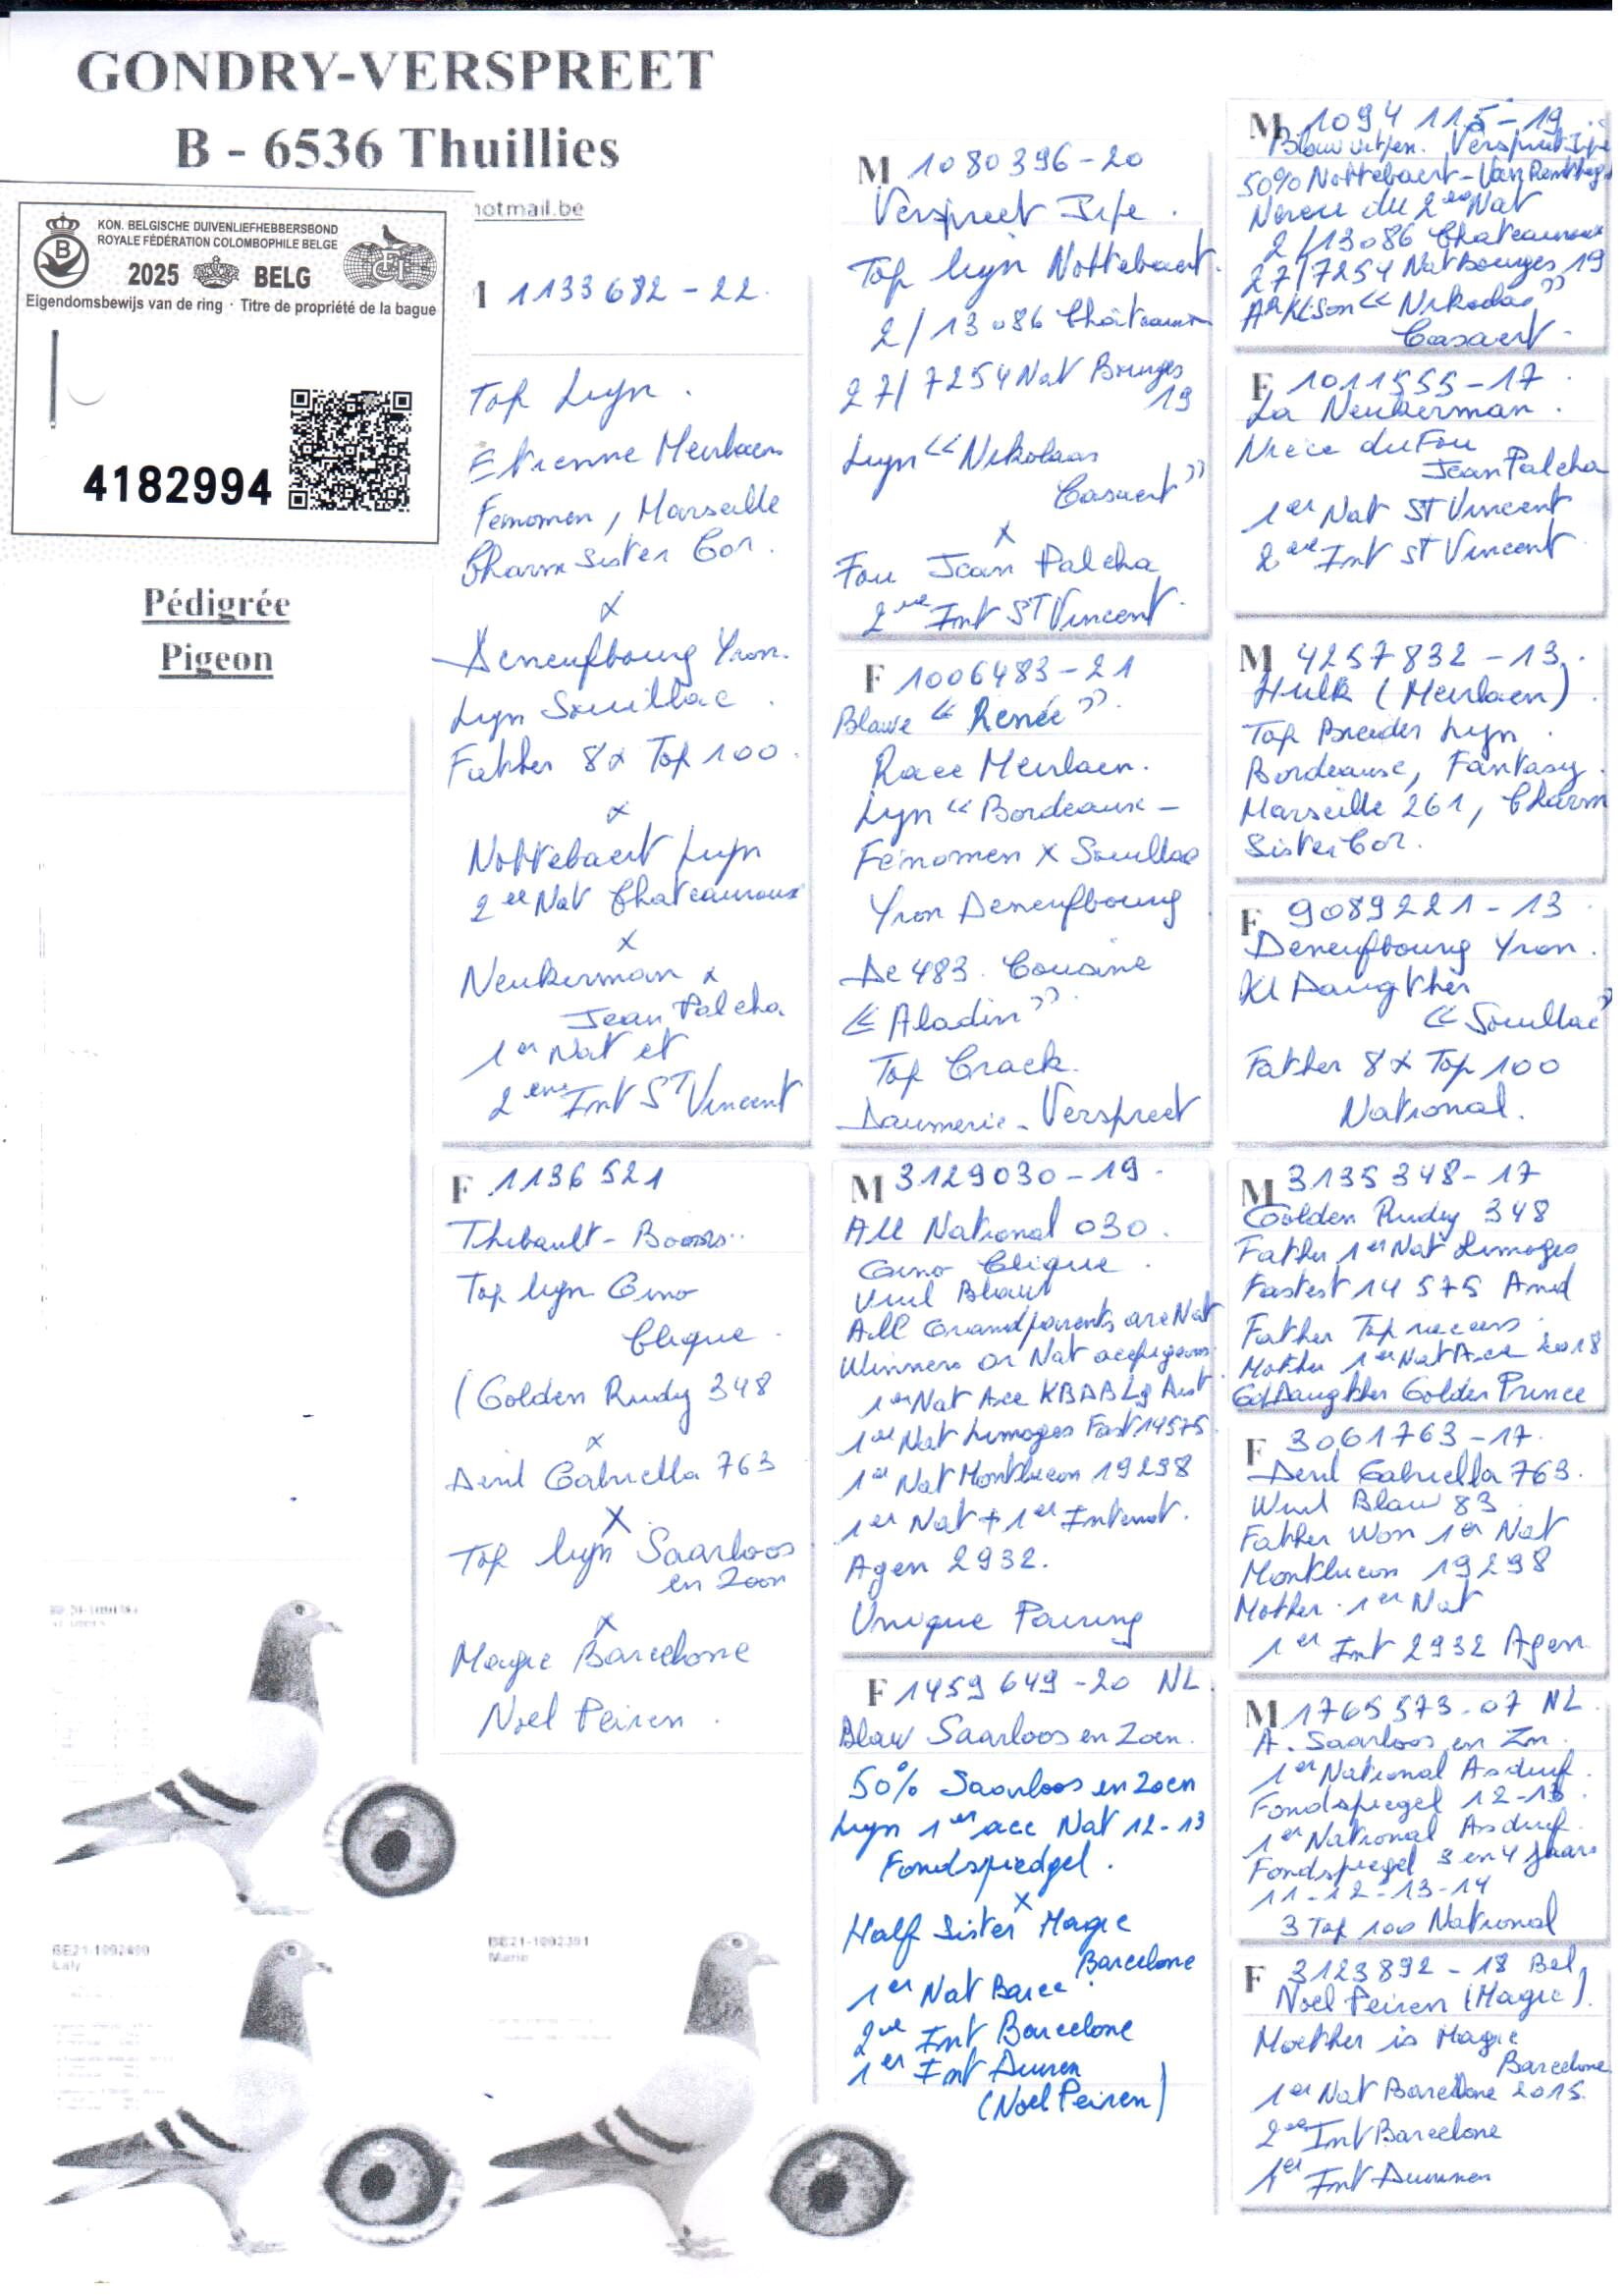 GONDRY-VERSPREET
B - 6536 Thuillies
hotmail.be
KON. BELGISCHE DUIVENLIEFHEBBERSBOND
ROYALE FÉDÉRATION COLOMBOPHILE BELGE
2025 BELG
Eigendomsbewijs van de ring · Titre de propriété de la bague
4182994
Pédigrée
Pigeon
1133682-22.
Top Lyn.
Etienne Meulaen
Fenomen, Marseille
Charm Sister Cor.
x
Deneufbourg Yvon.
Lyn Souillac.
Father 8x Top 100.
x
Nottebaert Lyn
2 er Nat Chateauroux
x
Neukerman x
Jean Palcha
1 er Nat et
2 eme Int ST Vincent
F 1136521
Thibault-Boons..
Top lyn Gino
Clique.
(Golden Rudy 348
x
Devil Gabriella 763
X
Top lyn Saarloos
en Zoon
x
Magic Barcelone
Noel Peiren.
M 1080396-20
Verspreet Jefe.
Top lyn Nottebaert.
2/13086 Châteauroux
27/7254 Nat Bourges
19
Lyn "Nikolaas
Casaert"
x
Fou Jean Palcha
2 me Int ST Vincent.
F 1006483-21
Blauwe "Renée".
Race Meulaen.
Lyn "Bordeaux-
Fenomen x Souillac
Yvon Deneufbourg
De 483. Cousine
"Aladin"
Top Crack.
Daumerie-Verspreet
M 3129030-19.
All National 030.
Gino Clique.
Vuil Blauw
All Grandparents are Nat
Winners or Nat acepigeons.
1 er Nat Ace KBDB Lg Aust.
1 er Nat Limoges Fast 14575.
1 er Nat Montlucon 19298
1 er Nat + 1 er Internat.
Agen 2932.
Unique Pairing
F 1459649-20 NL.
Blauw Saarloos en Zoen.
50% Saarloos en Zoen
Lyn 1 er ace Nat 12-13
Fondspiedgel.
x
Half Sister Magic
Barcelone
1 er Nat Barce.
2 me Int Barcelone
1 er Int Duiven
(Noel Peiren)
M 1094115-19
Blauw witpen. Verspreet Jefe
50% Nottebaert-Van
Neveu du 2 eme Nat
2/13086 Chateauroux
27/7254 Nat Bourges 19
"Nikolas"
Casaert.
F 1011555-17.
La Neukerman.
Niece du Fou
Jean Palcha
1 er Nat ST Vincent
2 eme Int ST Vincent.
M 4257832-13.
Hulk (Meulaen)
Top Breeder Lyn.
Bordeause, Fantasy.
Marseille 261, Charm
Sister Cor.
F 9089221-13
Deneufbourg Yvon.
Kl Daugther
"Souillac"
Father 8x Top 100
National.
M 3135348-17
Golden Rudy 348
Father 1 er Nat Limoges
Fastest 14575 And
Father Top racers.
Mother 1 er Nat Ace 2018
Gd Daugther Golden Prince
F 3061763-17.
Devil Gabriella 763.
Vuil Blauw 83.
Father Won 1 er Nat
Montlucon 19298
Mother. 1 er Nat
1 er Int 2932 Agen
M 1765573-07 NL.
A. Saarloos en Zn.
1 er National Asduif.
Fondspiegel 12-13.
1 er National Asduif.
Fondspiegel 3 en 4 Jaars
11-12-13-14
3 Top 100 National
F 3123892-18 Bel,
Noel Peiren (Magic).
Moether is Magic
Barcelone
1 er Nat Barcelone 2015.
2 er Int Barcelone
1 er Int
BE21-1092400
Laly
BE21-1092391
Marie